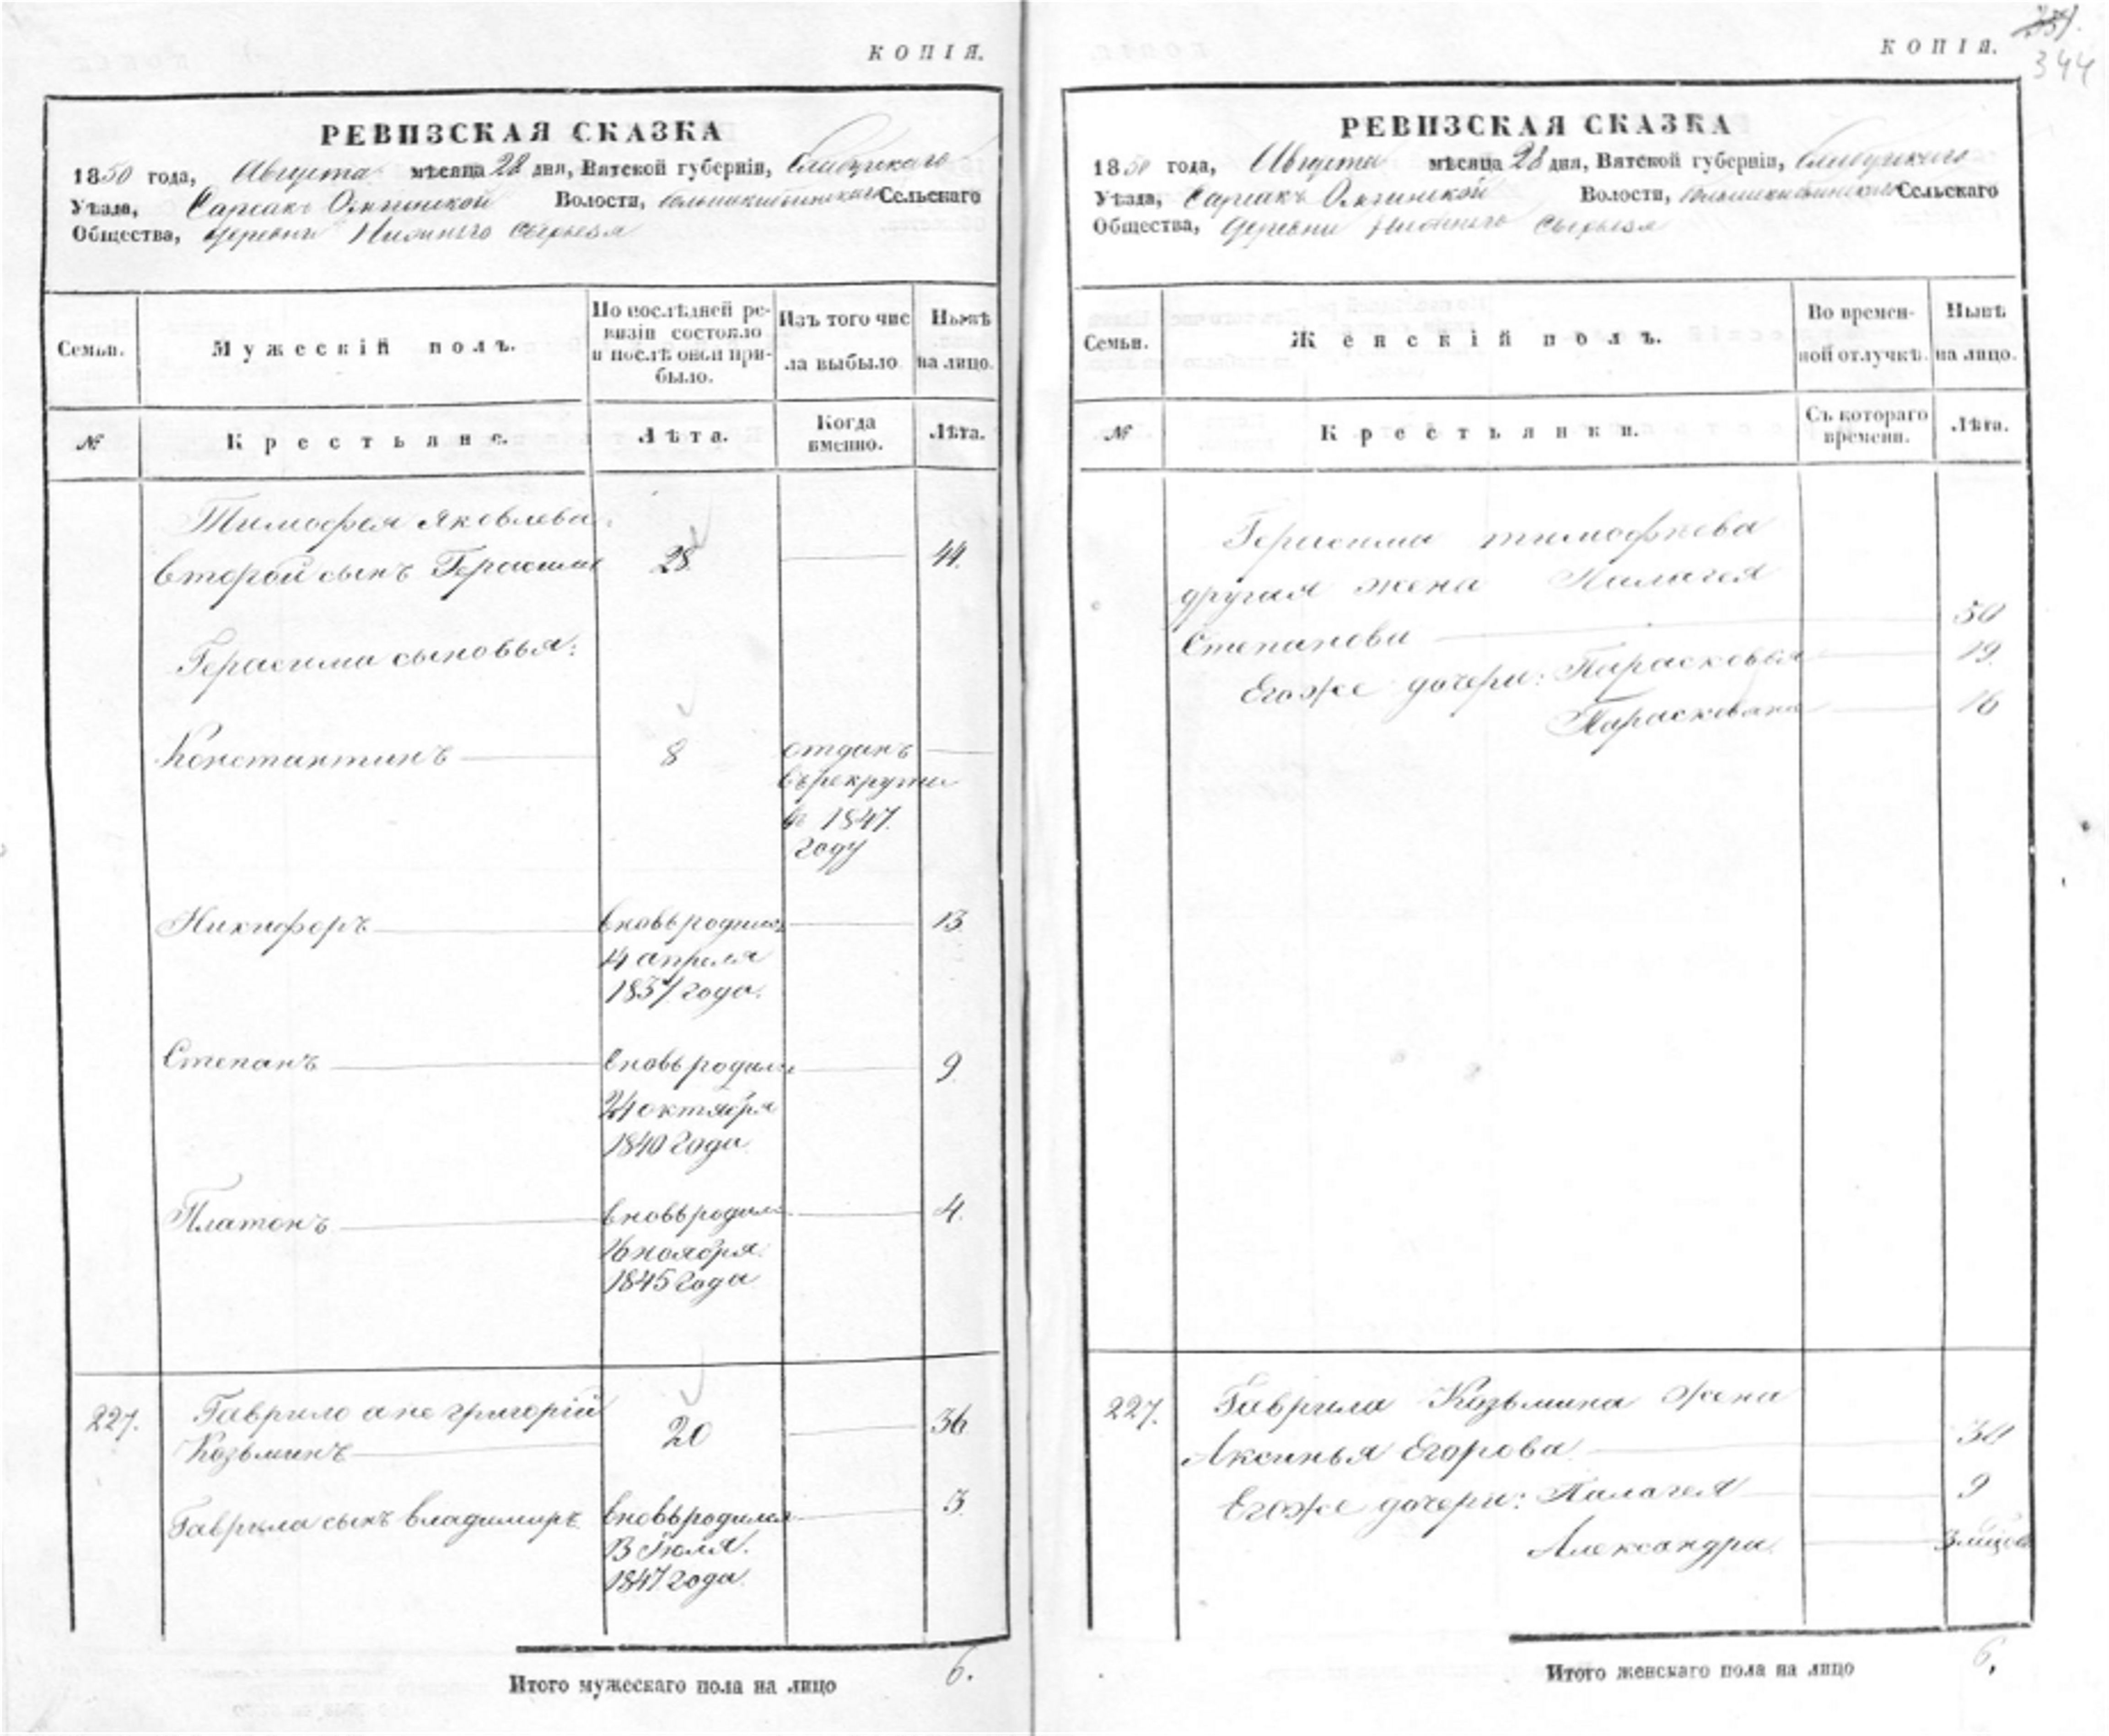 КОПІЯ.
РЕВИЗСКАЯ СКАЗКА
1850 года, Августа мѣсяца 28 дня, Вятской губерніи, Елабужскаго
Уѣзда, Сарсакъ Омгинской Волости, Сельскаго
Общества, деревни Нижняго Сырьеза
Семьи. Мужескій полъ. По послѣдней ревизіи состояло и послѣ оной прибыло. Изъ того числа выбыло. Нынѣ на лицо.
№ Крестьяне. Лѣта. Когда именно. Лѣта.
Тимофея Яковлева
второй сынъ Герасимъ 28 44.
Герасима сыновья:
Константинъ 8 отданъ
въ рекруты
въ 1847.
году
Никифоръ вновь родился 13
14 апреля
1837 года.
Степанъ вновь родился 9
24 октября
1840 года
Платонъ вновь родился 4.
16 ноября
1845 года
227. Гаврило а не григорій 20 36
Козьминъ
Гаврила сынъ владимиръ вновь родился 3
13 Іюля.
1847 года.
Итого мужескаго пола на лицо 6.
КОПІЯ. 344
РЕВИЗСКАЯ СКАЗКА
1850 года, Августа мѣсяца 28 дня, Вятской губерніи, Елабужскаго
Уѣзда, Сарсакъ Омгинской Волости, Сельскаго
Общества, деревни Нижняго Сырьеза
Семьи. Женскій полъ. Во временной отлучкѣ. Нынѣ на лицо.
№ Крестьянки. Съ котораго времени. Лѣта.
Герасима тимофѣева
другая жена Палагея
Степанова 50
Егоже дочери: Парасковья 19
16
227. Гаврила Козьмина жена
Аксинья Егорова 30
Егоже дочери: Палагея 9
Александра
Итого женскаго пола на лицо 6.